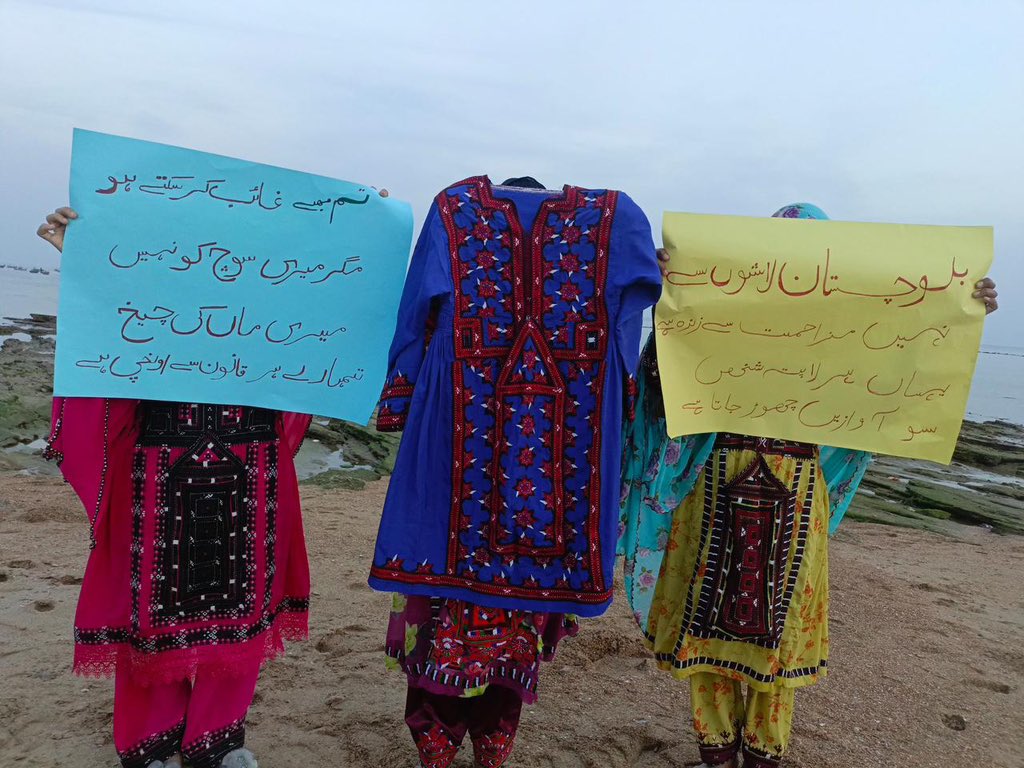 تم مجھے غائب کر سکتے ہو
مگر میری سوچ کو نہیں
میری ماں کی چیخ
تمہارے ہر قانون سے اونچی ہے
بلوچستان لاشوں سے
نہیں مزاحمت سے زندہ ہے
یہاں ہر لاپتہ شخص
سو آوازیں چھوڑ جاتا ہے